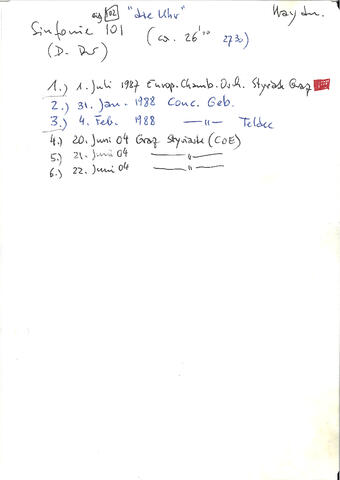 102 "die Uhr" Haydn.
Sinfonie 101 (ca. 26'30 27'30)
(D-Dur)
1.) 1. Juli 1987 Europ. Chamb. Orch. Styriarte Graz
2.) 31. Jan. 1988 Conc. Geb.
3.) 4. Feb. 1988 —"— Teldec
4.) 20. Juni 04 Graz Styriarte (COE)
5.) 21. Juni 04 —"—
6.) 22. Juni 04 —"—